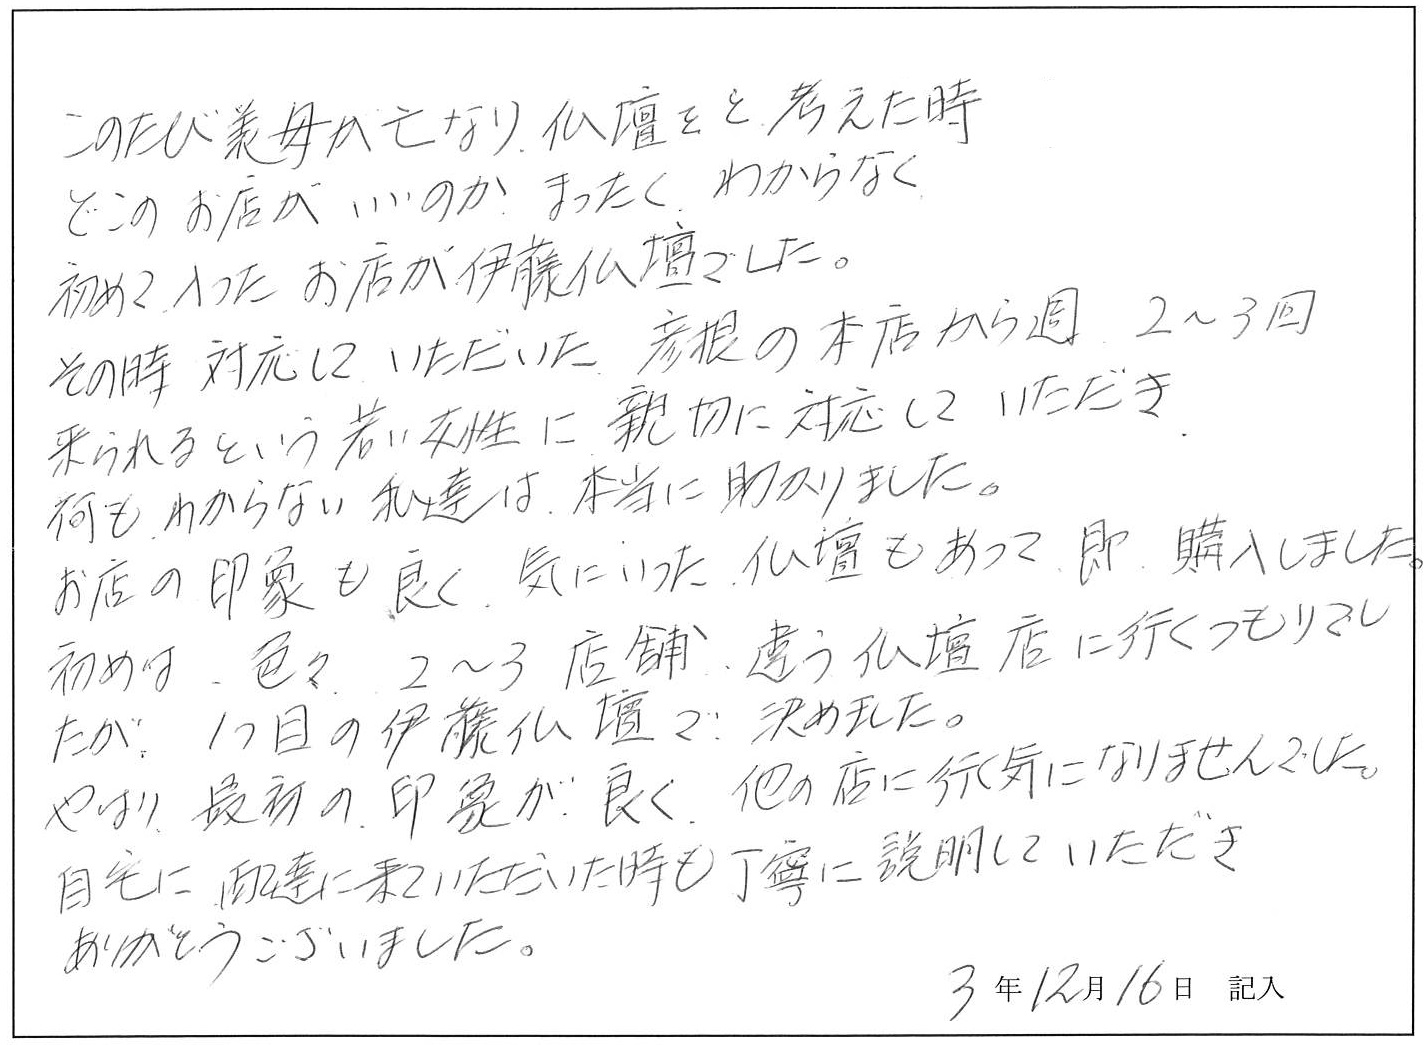 このたび義母が亡なり、仏壇をと考えた時
どこのお店がいいのか、まったく、わからなく
初めて入ったお店が伊藤仏壇でした。
その時対応していただいた彦根の本店から週2〜3回
来られるという若い女性に親切に対応していただき、
何もわからない私達は本当に助りました。
お店の印象も良く、気にいった仏壇もあって、即、購入しました。
初めは、色々、2〜3店舗、違う仏壇店に行くつもりでし
たが、1つ目の伊藤仏壇で決めました。
やはり、最初の印象が良く、他の店に行く気になりませんでした。
自宅に配達に来ていただいた時も丁寧に説明していただき
ありがとうございました。
3年12月16日 記入